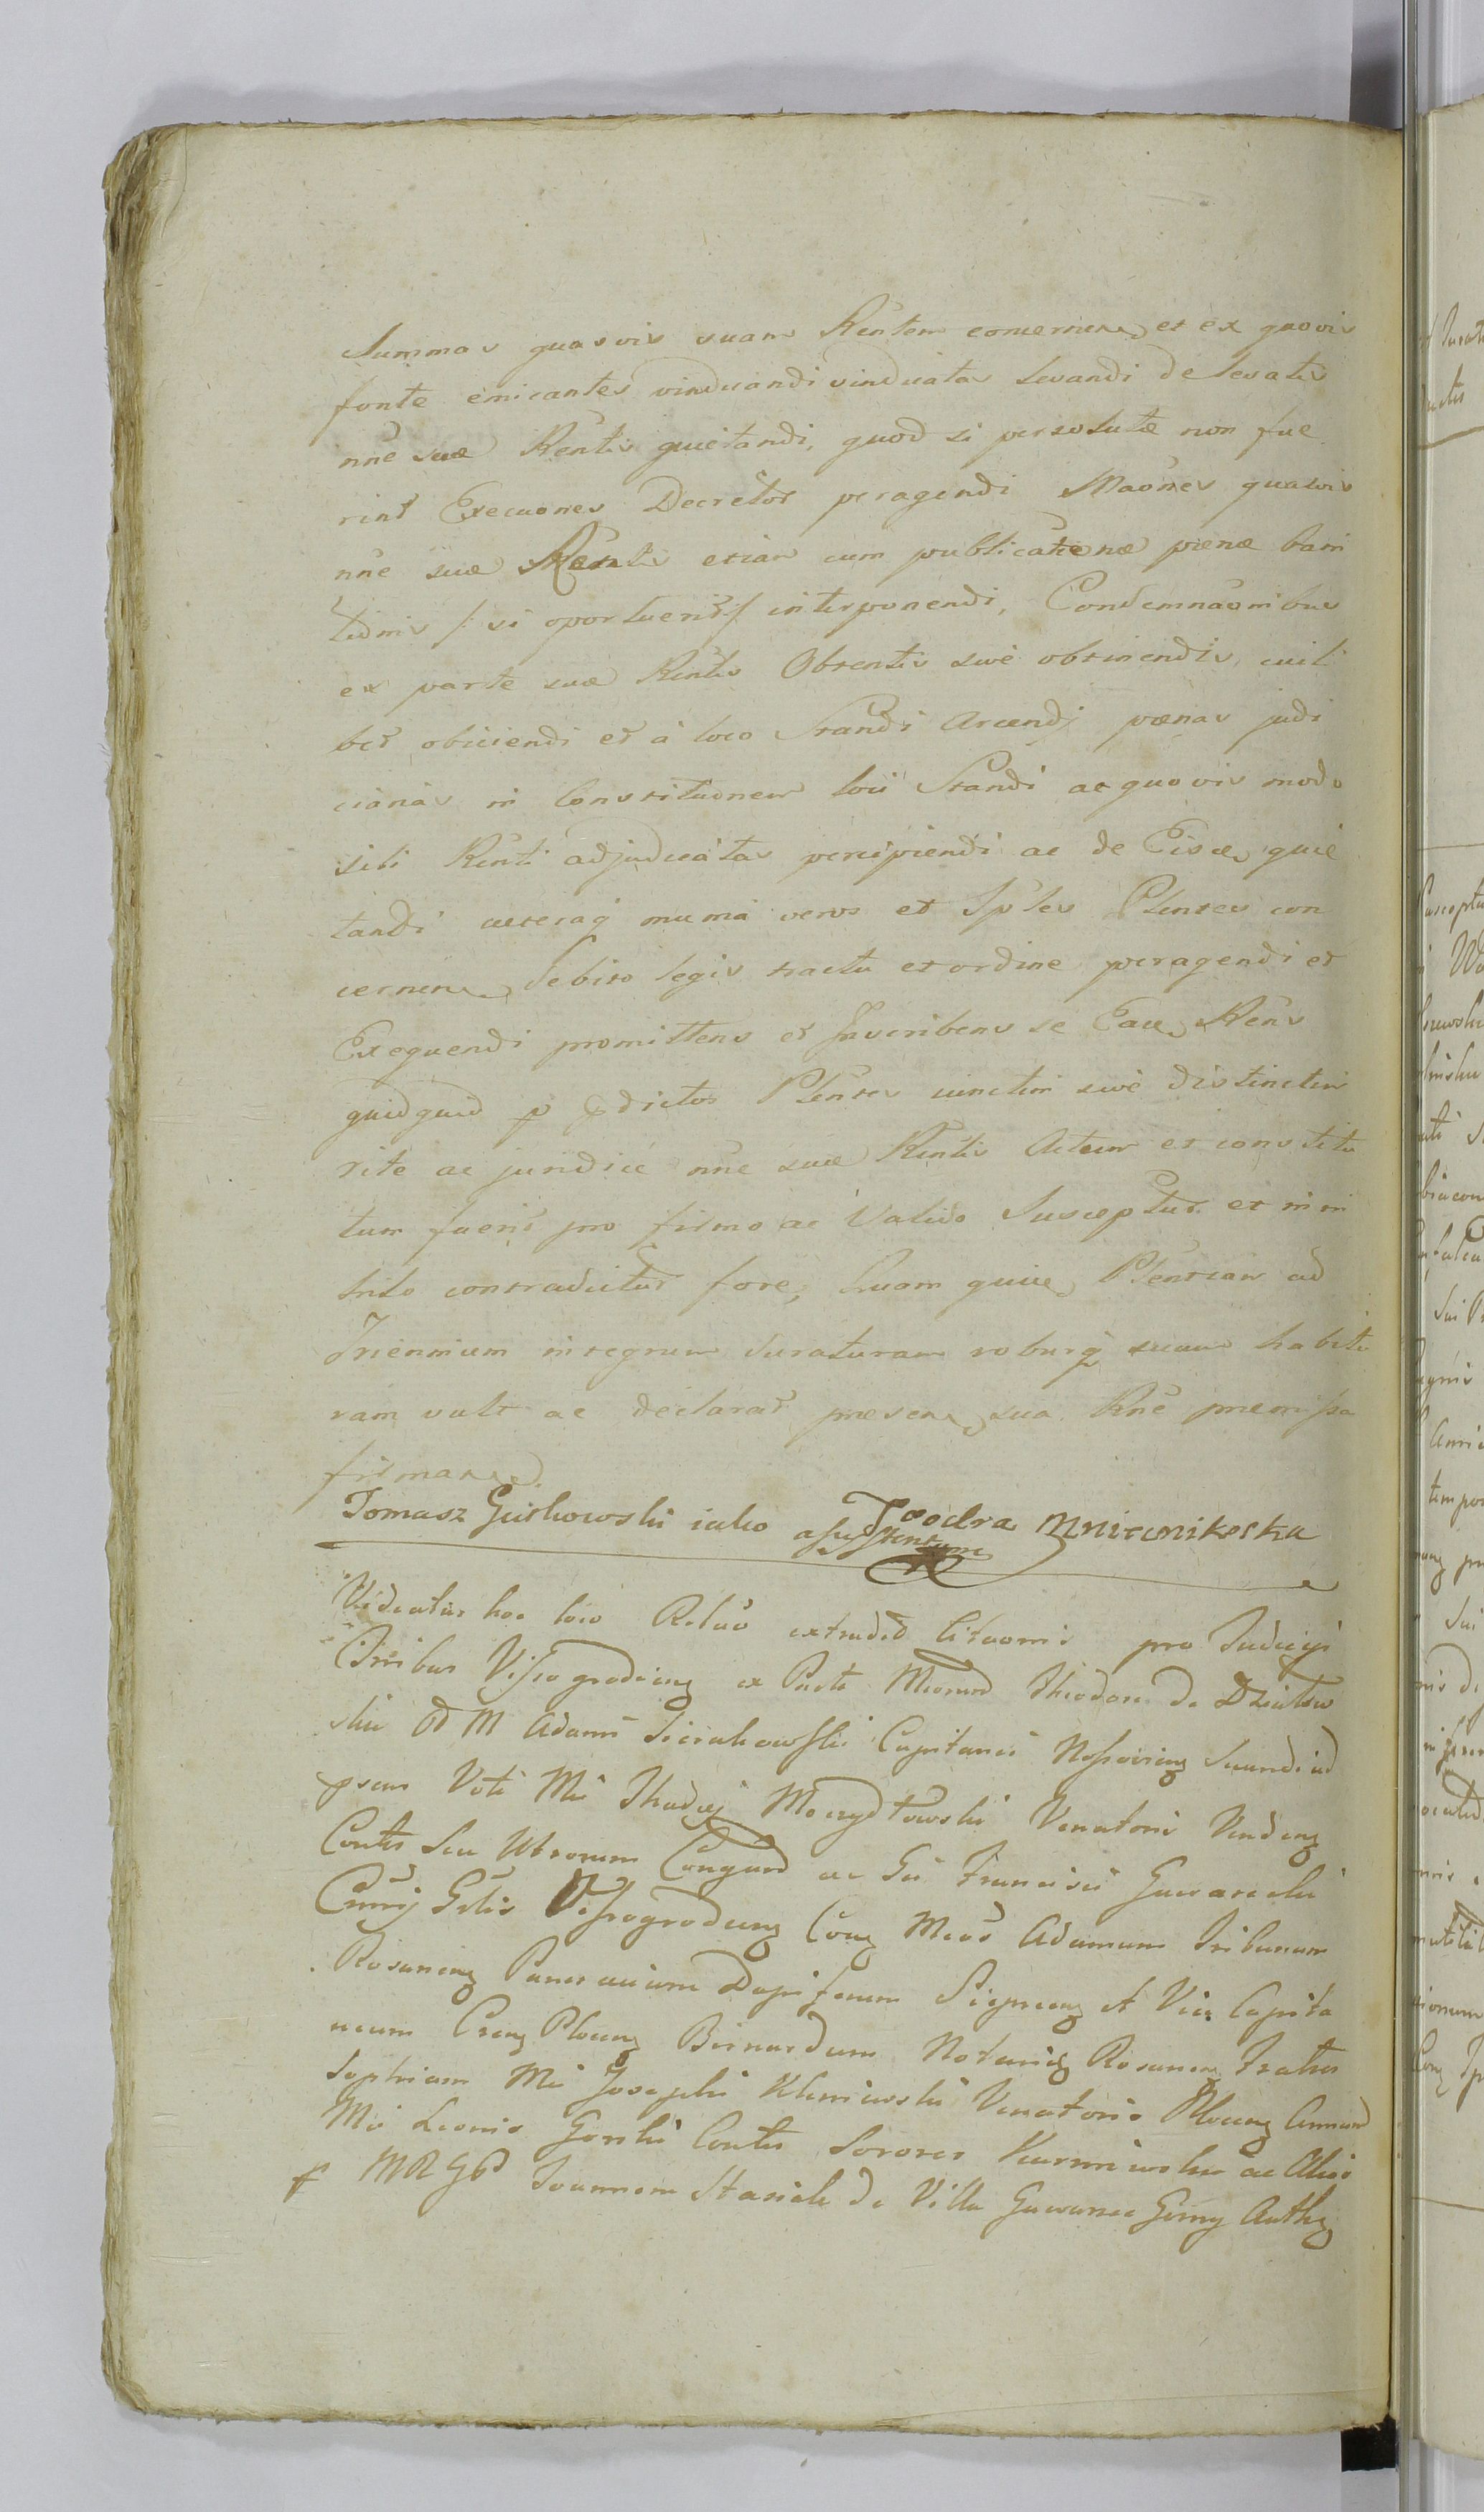 Summas quasvis suam Rentem concernen et ex quovis
fonte emicantes vindicandi vindicatas levandi de levatis
nne suæ Rentis quietandi, quod si persolutæ non fue
rint Execuones Decretor peragendi Maones quasvis
nne suæ Rentis etiam cum publicatione pænæ bani
tionis /: si oportuerit :/ interponendi, Condemnaonibus
ex parte suæ Rentis Obtentis sive obtinendis, cuili
bet obiiciendi et à loco Standi arcendi pœnas judi
ciarias in Constituonem loci Standi ac quovis modo
sibi Renti adjudicatas percipiendi ac de Eisce quie
tandi ceteraq munia veros et Sples Plentes con
cernen debito legis tractu et ordine peragendi et
Exequendi promittens et Inscribens se Eace Rens
quidquid p pdictos Plentes cunctim sive distinctim
rite ac juridice nne suæ Rentis Actum et constitu
tum fuerit pro firmo ac Valido Susceptur et in ni
hilo contradictur fore, Quam quice Plentiam ad
Triennium integrum duraturam roburq suum habitu
ram vult ac declarat præsen sua Rne præmissa
firmare
Tomasz Gutkowski iako assystent Teodra Mniewnikoska
Videatur hoc loco Relao extraded Cituonis pro Judicys
Ctribus Vissogrodien ex Parte Mcorum Theodore de
ski Od M Adami Sierakowski Capitanei secundi ad
psens Voti Mci Thadei Moczydłowski Venatoris
Contis seu Utrorum Conjund ac Gsi Francisci Gawarecki
Vissogrodien Con Mcos Adamum Tribunum
Rosanien Pancracium Dapiferum Sierpcen et Vice Capita
neum Plocen Bernardum Notarium Rosanien Fratres
Sophiam Mci Josephi Kleniewski Venatoris Plocen Annam
Mci Leonis Gorski Contes Sorores ac Alios
p MRGsd Joannem Stasiak de Villa Gawarzec Gorny Authen